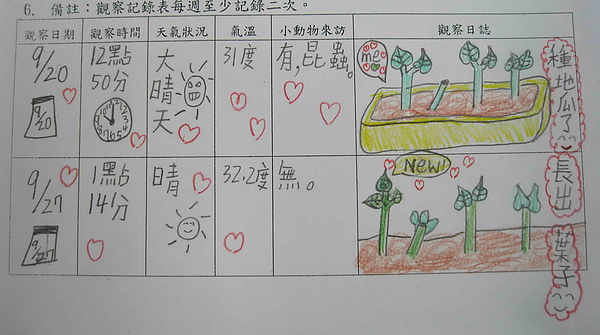 6. 備註：觀察記錄表每週至少記錄二次。
觀察日期 觀察時間 天氣狀況 氣溫 小動物來訪 觀察日誌
9/20 12點50分 大晴天 31度 有,昆蟲。
me
種地瓜了
9/20
9/27 1點141分 晴 32.2度 無。
NEW!
長出葉子
9/27